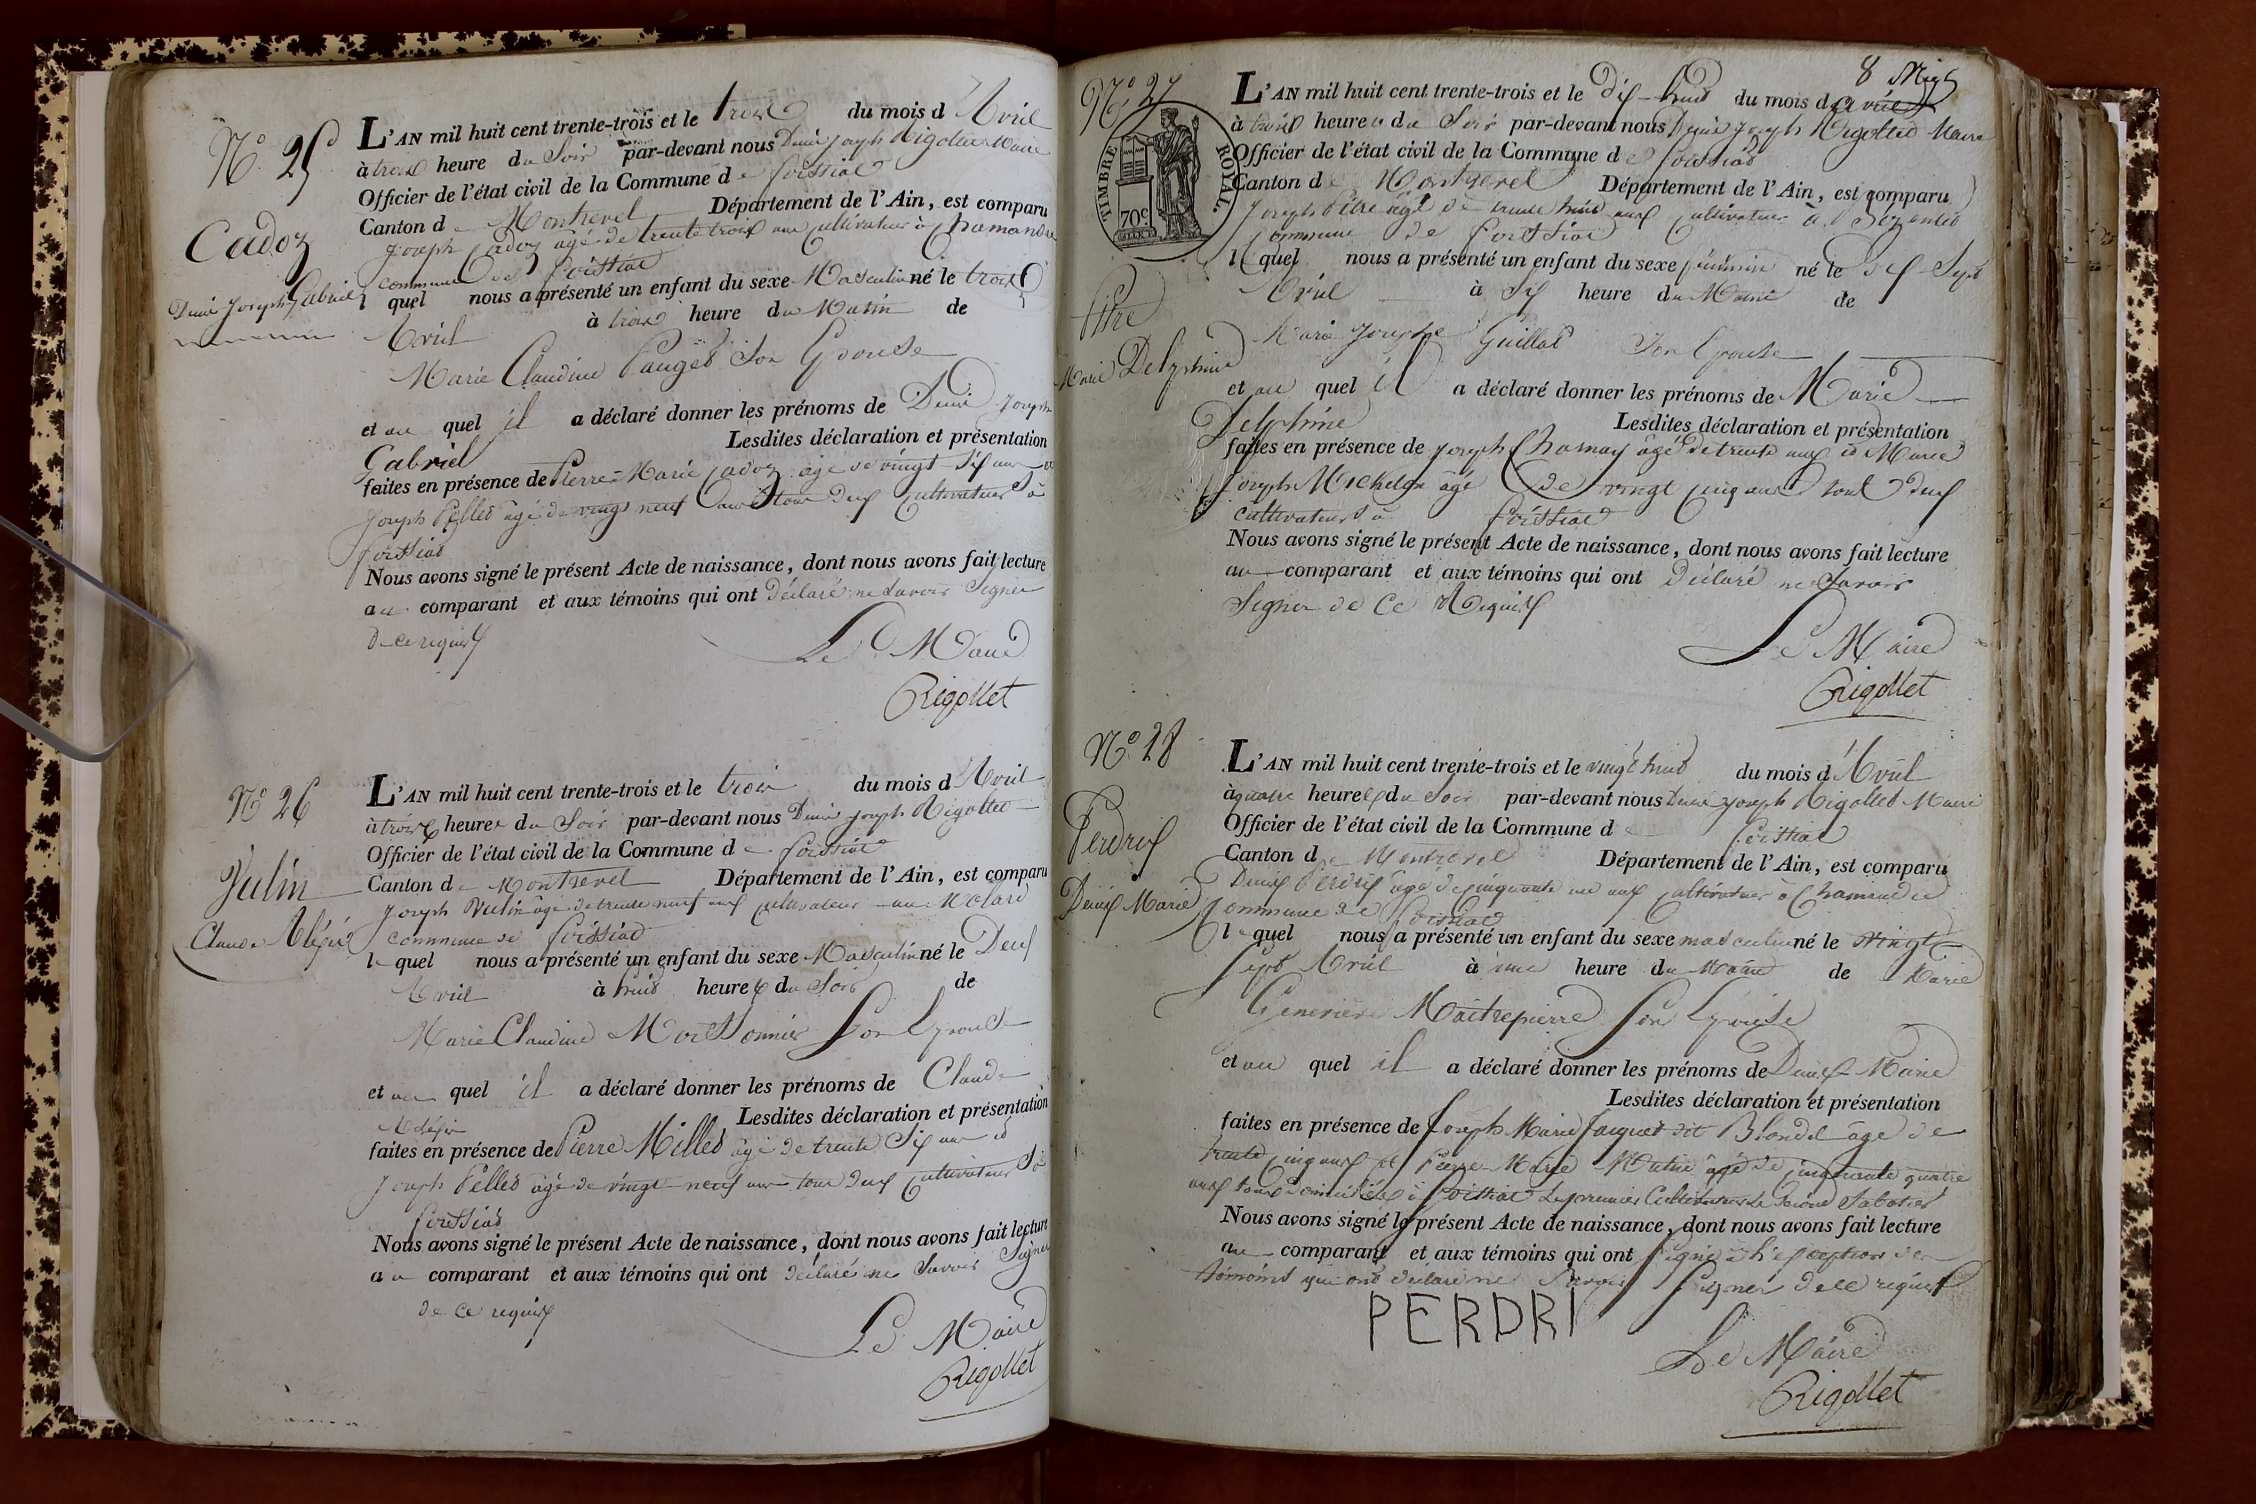 N.º 25
Cadoz
Denis Joseph Gabriel
L'AN mil huit cent trente-trois et le trois du mois d'Avril
à trois heure du Soir par-devant nous Denis Joseph Rigollet Maire
Officier de l'état civil de la Commune de foissiat
Canton de Montrevel Département de l'Ain, est comparu
Joseph Cadoz âgé de trente trois ans cultivateur à Chamandre
commune de foissiat
lequel nous a présenté un enfant du sexe Masculin né le trois
Avril à trois heure du Matin de
Marie Claudine Pauget Son Epouse
et au quel il a déclaré donner les prénoms de Denis Joseph
Gabriel Lesdites déclaration et présentation
faites en présence de Pierre-Marie Cadoz âgé de vingt-six ans et
Joseph Pellet âgé de vingt neuf ans tous deux cultivateurs à
foissiat
Nous avons signé le présent Acte de naissance, dont nous avons fait lecture
au comparant et aux témoins qui ont déclaré ne Savoir Signer
de ce requis
Le Maire
Rigollet
N.º 26
Vulin
Claude
L'AN mil huit cent trente-trois et le trois du mois d'Avril
à trois heures du Soir par-devant nous Denis Joseph Rigollet
Officier de l'état civil de la Commune de foissiat
Canton de Montrevel Département de l'Ain, est comparu
Joseph Vulin âgé de trente neuf ans cultivateur au
commune de foissiat
lequel nous a présenté un enfant du sexe Masculin né le Deux
Avril à huit heures du Soir de
Marie Claudine Son Epouse
et au quel il a déclaré donner les prénoms de Claude
Lesdites déclaration et présentation
faites en présence de Pierre Millet âgé de trente Six ans et
Joseph Pellet âgé de vingt neuf ans tous deux cultivateurs à
foissiat
Nous avons signé le présent Acte de naissance, dont nous avons fait lecture
au comparant et aux témoins qui ont déclaré ne Savoir Signer
de ce requis
Le Maire
Rigollet
8
N.º 27
TIMBRE ROYAL.
70c
Pitre
Marie Delphine
L'AN mil huit cent trente-trois et le dix-huit du mois d'avril
à trois heures du Soir par-devant nous Denis Joseph Rigollet Maire
Officier de l'état civil de la Commune de foissiat
Canton de Montrevel Département de l'Ain, est comparu
Joseph Pitre âgé de trente huit ans cultivateur à
commune de foissiat
lequel nous a présenté un enfant du sexe féminin né le dix-Sept
Avril à Six heure du Matin de
Marie Josephe Guillot Son Epouse
et au quel il a déclaré donner les prénoms de Marie
Delphine Lesdites déclaration et présentation
faites en présence de Joseph Chamay âgé de trente ans et Marie
Joseph Michelon âgé de vingt cinq ans tous deux
cultivateurs à foissiat
Nous avons signé le présent Acte de naissance, dont nous avons fait lecture
au comparant et aux témoins qui ont Déclaré ne Savoir
Signer de Ce Requis
Le Maire
Rigollet
N.º 28
Perdrix
Denis Marie
L'AN mil huit cent trente-trois et le vingt huit du mois d'Avril
à quatre heures du Soir par-devant nous Denis Joseph Rigollet Maire
Officier de l'état civil de la Commune de foissiat
Canton de Montrevel Département de l'Ain, est comparu
Denis Perdrix âgé de cinquante un ans cultivateur à Chamandre
Commune de foissiat
lequel nous a présenté un enfant du sexe masculin né le Vingt
Sept Avril à une heure du Matin de Marie
Geneviève Maitrepierre Son Epouse
et au quel il a déclaré donner les prénoms de Denis Marie
Lesdites déclaration et présentation
faites en présence de Joseph Marie Jacquet dit Blondel âgé de
trente cinq ans et Pierre-Marie âgé de cinquante quatre
ans tous domiciliés à foissiat Le premier Cultivateur Le Second Sabotier
Nous avons signé le présent Acte de naissance, dont nous avons fait lecture
au comparant et aux témoins qui ont Signé à l'exception des
témoins qui ont déclaré ne Savoir Signer de ce requis
PERDRI
Le Maire
Rigollet